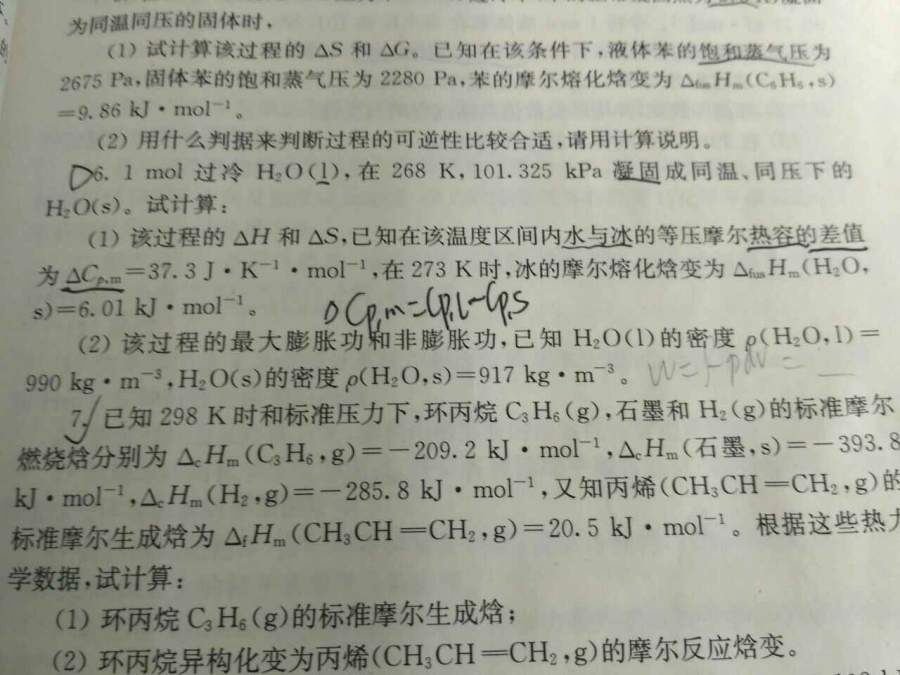 为同温同压的固体时,
(1) 试计算该过程的 ΔS 和 ΔG。已知在该条件下,液体苯的饱和蒸气压为
2675 Pa,固体苯的饱和蒸气压为 2280 Pa,苯的摩尔熔化焓变为 ΔfusHm(C6H6,s)
=9.86 kJ·mol⁻¹。
(2) 用什么判据来判断过程的可逆性比较合适,请用计算说明。
6. 1 mol 过冷 H2O(l),在 268 K,101.325 kPa 凝固成同温、同压下的
H2O(s)。试计算:
(1) 该过程的 ΔH 和 ΔS,已知在该温度区间内水与冰的等压摩尔热容的差值
为 ΔCp,m=37.3 J·K⁻¹·mol⁻¹,在 273 K 时,冰的摩尔熔化焓变为 ΔfusHm(H2O,
s)=6.01 kJ·mol⁻¹。 ΔCp,m=Cp,l-Cp,s
(2) 该过程的最大膨胀功和非膨胀功,已知 H2O(l)的密度 ρ(H2O,l)=
990 kg·m⁻³,H2O(s)的密度 ρ(H2O,s)=917 kg·m⁻³。 W=-pdV=
7. 已知 298 K 时和标准压力下,环丙烷 C3H6(g),石墨和 H2(g)的标准摩尔
燃烧焓分别为 ΔcHm(C3H6,g)=-209.2 kJ·mol⁻¹,ΔcHm(石墨,s)=-393.8
kJ·mol⁻¹,ΔcHm(H2,g)=-285.8 kJ·mol⁻¹,又知丙烯(CH3CH=CH2,g)的
标准摩尔生成焓为 ΔfHm(CH3CH=CH2,g)=20.5 kJ·mol⁻¹。根据这些热力
学数据,试计算:
(1) 环丙烷 C3H6(g)的标准摩尔生成焓;
(2) 环丙烷异构化变为丙烯(CH3CH=CH2,g)的摩尔反应焓变。